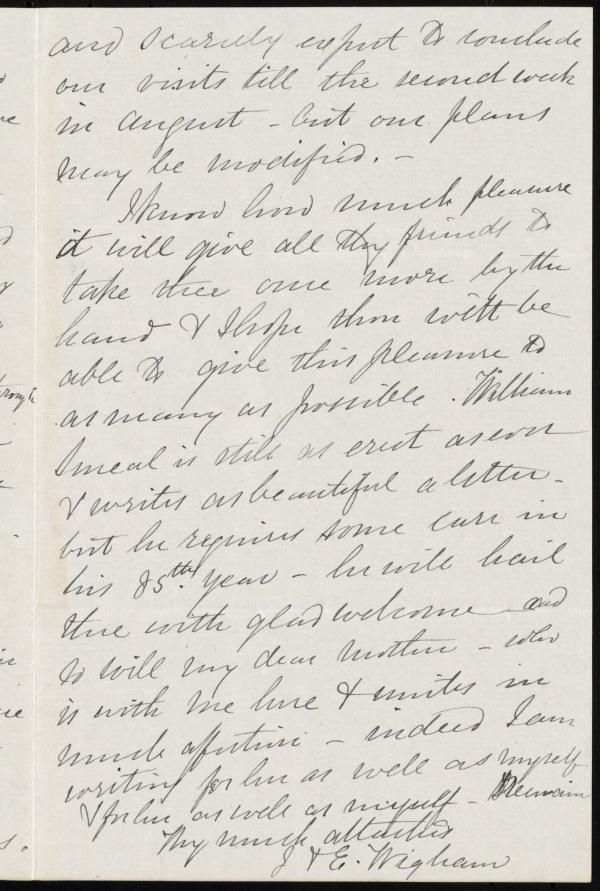 and scarcely expect to conclude
our visits till the second week
in August - but our plans
may be modified. -
I know how much pleasure
it will give all thy friends to
take thee once more by the
hand & I hope thou wilt be
able to give this pleasure to
as many as possible. William
Smeal is still as erect as ever
& writes as beautiful a letter -
but he requires some care in
his 85th. year - he will hail
thee with glad welcome and
so will my dear mother - who
is with me here & unites in
much affection - indeed I am
writing for her as well as myself
& for her as well as myself - Remain
Thy much attached
J & E. Wigham